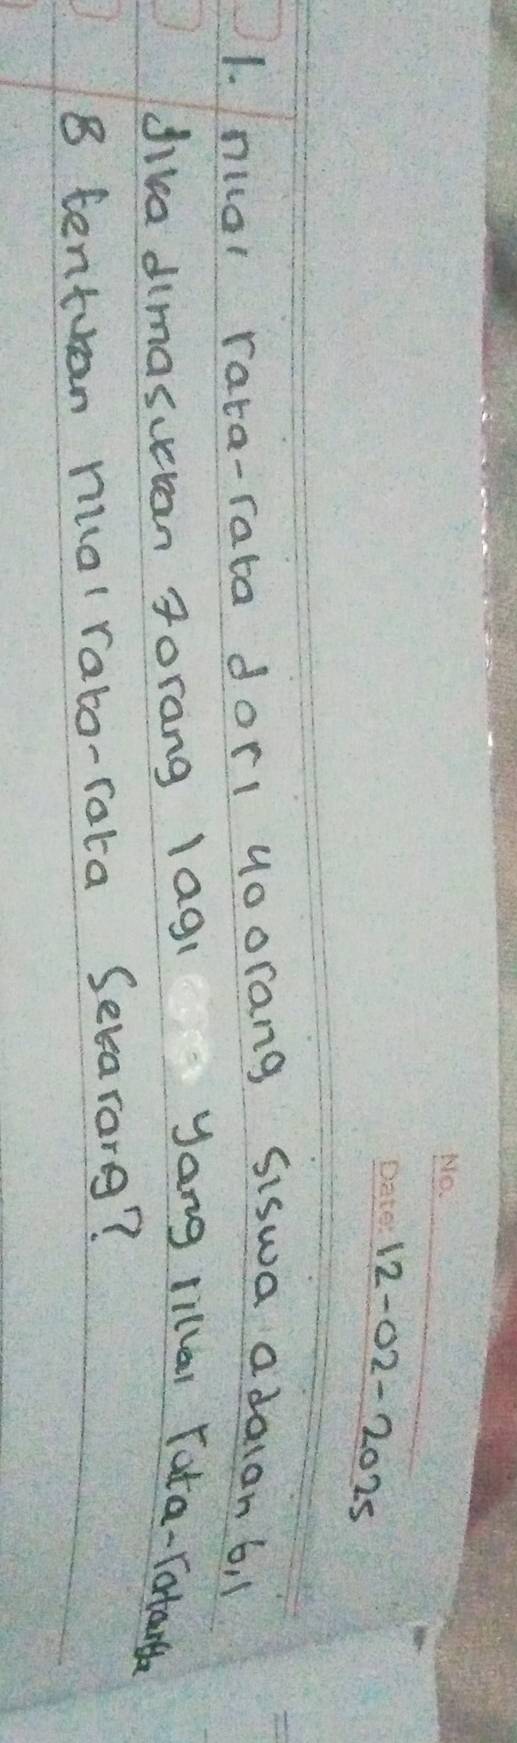 No.
Date: 12-02-2025
1. nilai rata-rata dari 40 orang siswa adalah 6,1
Jika dimasukkan 7 orang lagi yang nilai rata-ratanya
8 tentukan nilai rata-rata sekarang?